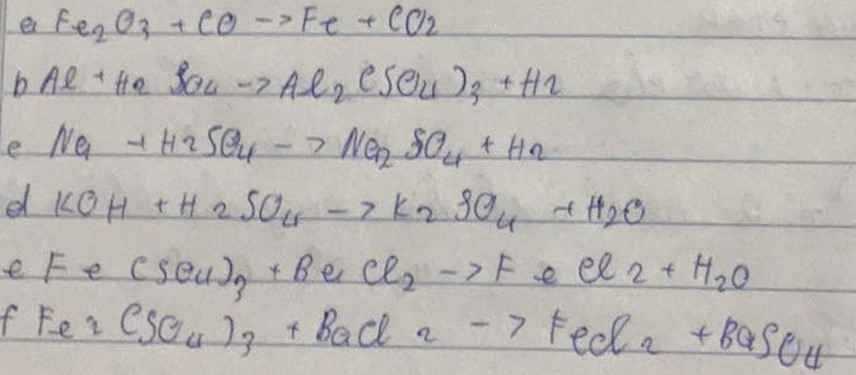 a Fe2O3 + CO -> Fe + CO2
b Al + H2 SO4 -> Al2 (SO4)3 + H2
c Na + H2SO4 -> Na2 SO4 + H2
d KOH + H2SO4 -> K2 SO4 + H2O
e Fe (SO4)3 + Ba Cl2 -> Fe Cl2 + H2O
f Fe2 (SO4)3 + BaCl2 -> FeCl2 + BaSO4